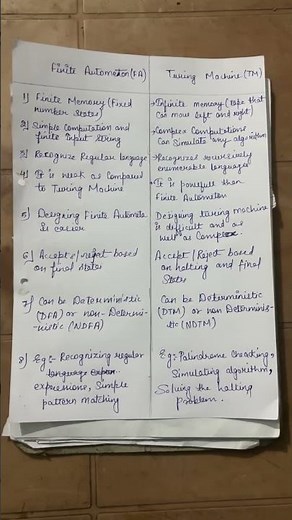 Finite Automaton (FA)
Turing Machine (TM)
1) Finite Memory (Fixed
number States)
→ Infinite memory (tape that
can move left and right)
2) Simple Computation and
finite input string
→ Complex Computations
Can Simulate any algorithm
3) Recognize Regular language
→ Recognized recursively
enumerable languages
4) It is weak as Compared
to Turing Machine
→ It is powerful than
Finite Automaton
5) Designing Finite Automata
is easier
Designing turing machine
is difficult and as
well as Complex.
6) Accept/reject based
on final states
Accept/Reject based
on halting and final
States
7) Can be Deterministic
(DFA) or non-Determi-
nistic (NDFA)
Can be Deterministic
(DTM) or non Determinis-
tic (NDTM)
8) Eg:- Recognizing regular
language
expressions, Simple
pattern matching
Eg:- Palindrome Checking,
Simulating algorithm,
Solving the halting
problem.